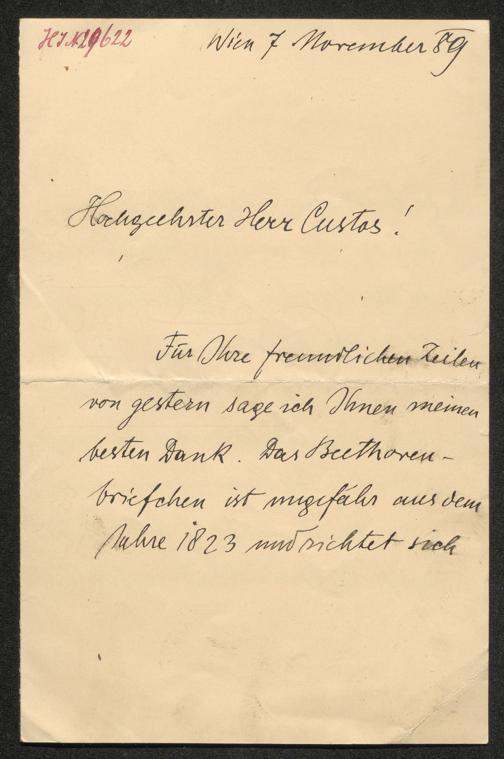 HIN 19622
Wien 7 November 89
Hochgeehrter Herr Custos!
Für Ihre freundlichen Zeilen
von gestern sage ich Ihnen meinen
besten Dank. Das Beethoven-
briefchen ist ungefähr aus dem
Jahre 1823 und richtet sich